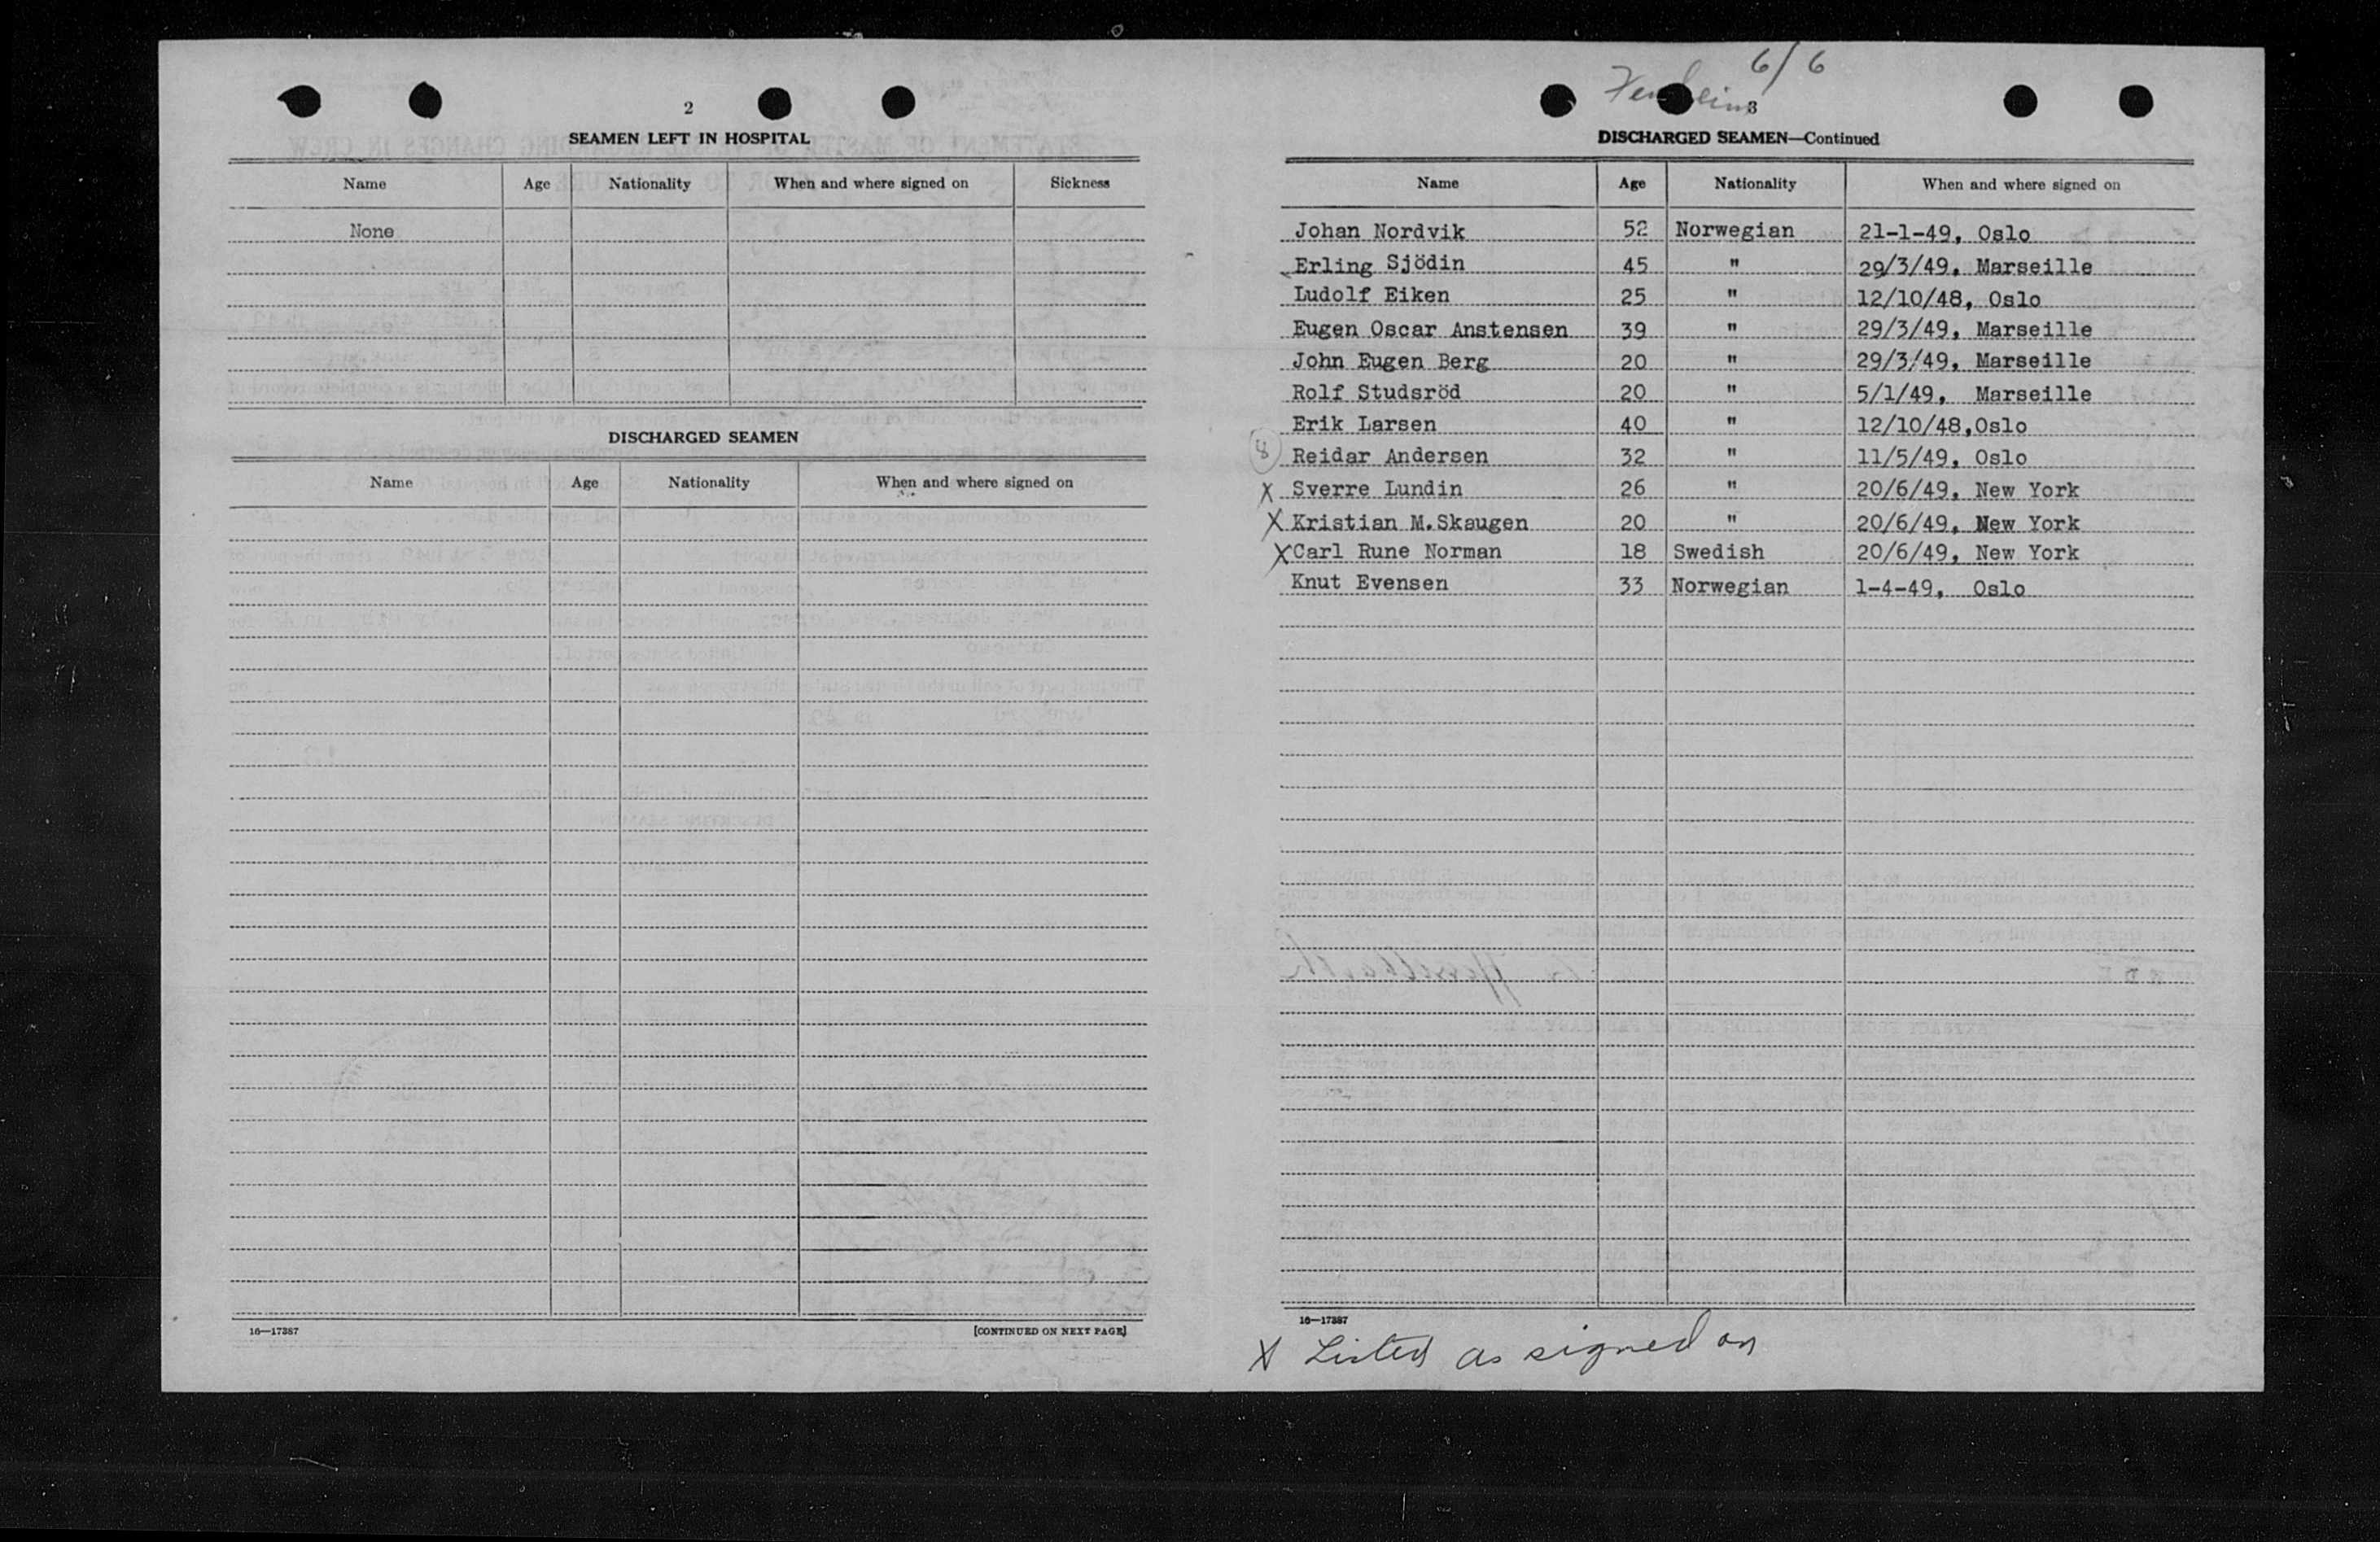 2
SEAMEN LEFT IN HOSPITAL
Name Age Nationality When and where signed on Sickness
None
DISCHARGED SEAMEN
Name Age Nationality When and where signed on
16—17387 [CONTINUED ON NEXT PAGE]
6/6
3
DISCHARGED SEAMEN—Continued
Name Age Nationality When and where signed on
Johan Nordvik 52 Norwegian 21-1-49, Oslo
Erling Sjödin 45 " 29/3/49, Marseille
Ludolf Eiken 25 " 12/10/48, Oslo
Eugen Oscar Anstensen 39 " 29/3/49, Marseille
John Eugen Berg 20 " 29/3/49, Marseille
Rolf Studsröd 20 " 5/1/49, Marseille
Erik Larsen 40 " 12/10/48,Oslo
8 Reidar Andersen 32 " 11/5/49, Oslo
X Sverre Lundin 26 " 20/6/49, New York
X Kristian M.Skaugen 20 " 20/6/49, New York
X Carl Rune Norman 18 Swedish 20/6/49, New York
Knut Evensen 33 Norwegian 1-4-49, Oslo
16—17387
X Listed as signed on